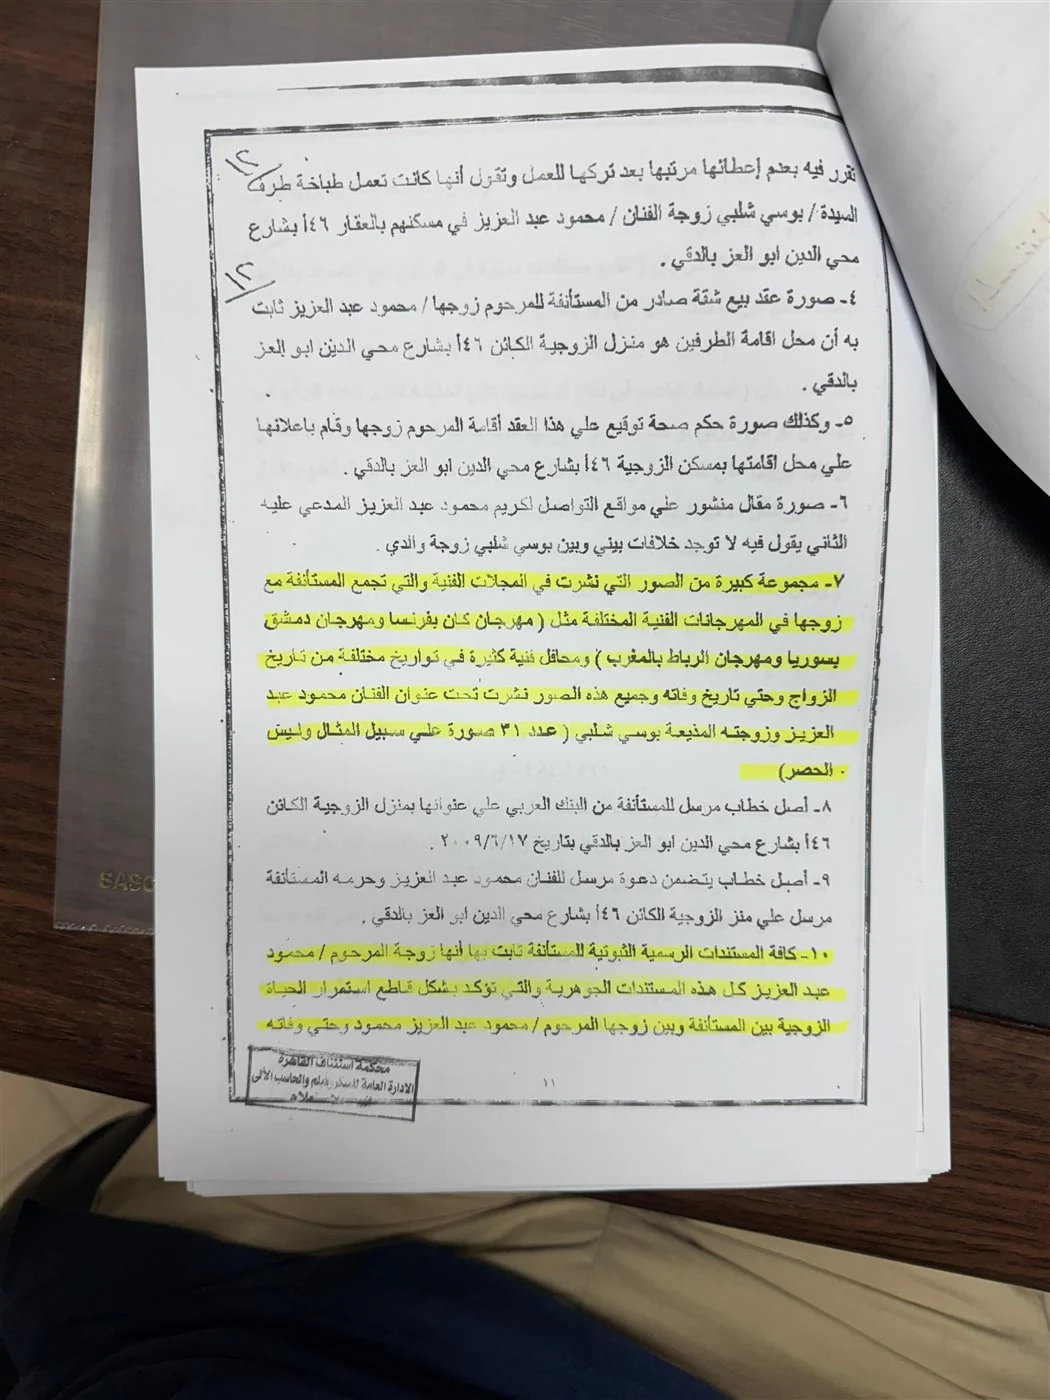 تقرر فيه بعدم إعطائها مرتبها بعد تركها للعمل وتقول أنها كانت تعمل طباخة طرف
السيدة / بوسي شلبي زوجة الفنان / محمود عبد العزيز في مسكنهم بالعقار ٤٦أ بشارع
محي الدين ابو العز بالدقي .
٤- صورة عقد بيع شقة صادر من المستأنفة للمرحوم زوجها / محمود عبد العزيز ثابت
به أن محل اقامة الطرفين هو منزل الزوجية الكائن ٤٦أ بشارع محي الدين ابو العز
بالدقي .
٥- وكذلك صورة حكم صحة توقيع علي هذا العقد أقامة المرحوم زوجها وقام باعلانها
علي محل اقامتها بمسكن الزوجية ٤٦أ بشارع محي الدين ابو العز بالدقي .
٦- صورة مقال منشور علي مواقع التواصل لكريم محمود عبد العزيز المدعي عليه
الثاني يقول فيه لا توجد خلافات بيني وبين بوسي شلبي زوجة والدي .
٧- مجموعة كبيرة من الصور التي نشرت في المجلات الفنية والتي تجمع المستأنفة مع
زوجها في المهرجانات الفنية المختلفة مثل ( مهرجان كان بفرنسا ومهرجان دمشق
بسوريا ومهرجان الرباط بالمغرب ) ومحافل فنية كثيرة في تواريخ مختلفة من تاريخ
الزواج وحتي تاريخ وفاته وجميع هذه الصور نشرت تحت عنوان الفنان محمود عبد
العزيز وزوجته المذيعة بوسي شلبي ( عدد ٣١ صورة علي سبيل المثال وليس
الحصر)
٨- أصل خطاب مرسل للمستأنفة من البنك العربي علي عنوانها بمنزل الزوجية الكائن
٤٦أ بشارع محي الدين ابو العز بالدقي بتاريخ ٢٠٠٩/٦/١٧ .
٩- أصل خطاب يتضمن دعوة مرسل للفنان محمود عبد العزيز وحرمه المستأنفة
مرسل علي منز الزوجية الكائن ٤٦أ بشارع محي الدين ابو العز بالدقي .
١٠- كافة المستندات الرسمية الثبوتية للمستأنفة ثابت بها أنها زوجة المرحوم / محمود
عبد العزيز كل هذه المستندات الجوهرية والتي تؤكد بشكل قاطع استمرار الحياة
الزوجية بين المستأنفة وبين زوجها المرحوم / محمود عبد العزيز محمود وحتي وفاته
١١
محكمة استئناف القاهرة
الادارة العامة للميكروفيلم والحاسب الآلى